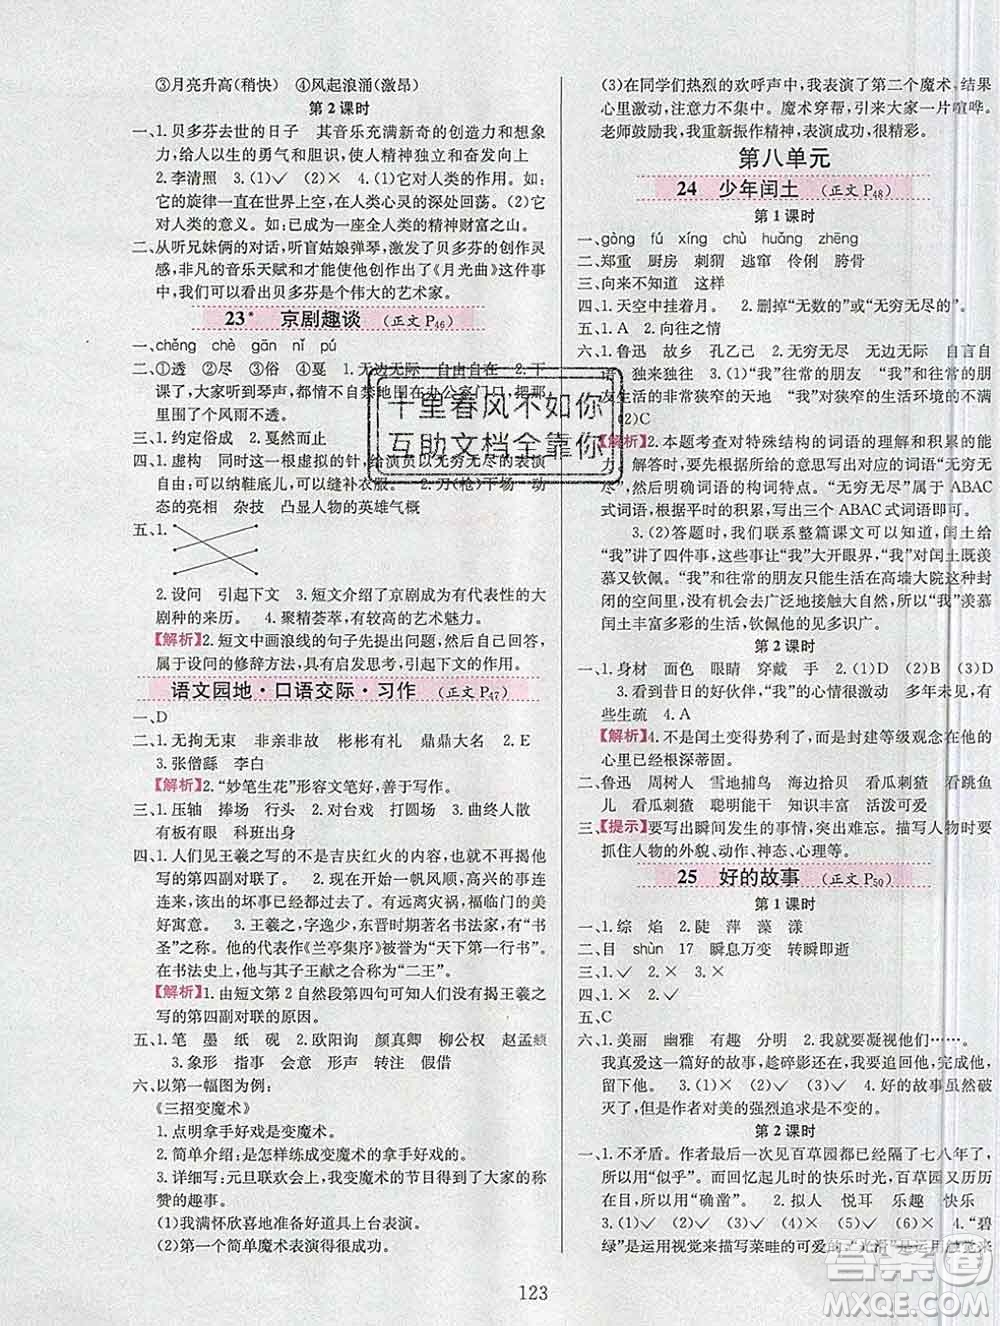 ③月亮升高(稍快)　④风起浪涌(激昂)
第2课时
一、1.贝多芬去世的日子　其音乐充满新奇的创造力和想象
力,给人以生的勇气和胆识,代表人
2.李清照　3.(1)✓　(2)×　4.(1)它对人类的作用。它
的旋律一直在世界上空、人类心灵的深处回荡。(2)这句
二、从听兄妹俩的对话,听盲姑娘弹琴,激发了贝多芬的创作灵
感,非凡的音乐天赋和
中,我们可以看出贝多芬是个伟大的艺术家。
23*　京剧趣谈　(正文P46)
一、chěng　chè　gān　nǐ　pú
二、①透　②尽　③俗　④戛　1.无边无际　自由自在　2.下
课了,大家听到琴声,都情不自禁地
里围了个风雨不透。
三、1.约定俗成　2.戛然而止
四、1.虚构　同时这一根虚拟的针,给演员以无穷无尽的表演
自由:可以纳鞋底儿,可以缝补衣服。　2.刀(枪)下场　动
态的亮相　杂技　凸显人物的英雄气概
五、1.
2.设问　引起下文　3.短文介绍了京剧成为有代表性的大
剧种的来历。　4.聚精荟萃,有较高的艺术魅力。
【解析】2.短文中画浪线的句子先提出问题,然后回答,
属于设问的修辞方法,具有启发思考、引起下文的作用。
语文园地·口语交际·习作　(正文P47)
一、D
二、1.无拘无束　非亲非故　彬彬有礼　鼎鼎大名　2.E
3.张僧繇　李白
【解析】2.“妙笔生花”形容文笔好,善于写作。
三、1.压轴　捧场　行头　2.对台戏　打圆场　3.字正腔圆
有板有眼　科班出身
四、1.人们见王羲之写的不是吉庆红火的内容,
的第四副对联了。　2.现在开始一帆风顺,高兴的事一件
连着一件。有的远离灾祸,福临门的好事也在不断发生,
在这个寓所。　3.王羲之,字逸少,东晋时期著名书法家,有“书
圣”之称。他的代表作《兰亭集序》被誉为“天下第一行书”。
在书法史上,他与其子王献之合称为“二王”。
【解析】1.由短文第2自然段第四句可知人们没揭王羲之
写的第四副对联的原因。
五、1.笔　墨　纸　砚　2.欧阳询　颜真卿　柳公权　赵孟頫
3.象形　指事　会意　形声　转注　假借
六、以第一幅图为例:
《三招变魔术》
1.点明拿手好戏是变魔术。
2.简单介绍:是怎样练成变魔术的拿手好戏的。
3.详细写:元旦联欢会上,我变魔术得到了同学们的称
赞的趣事。
(1)我满怀欣喜地准备好道具上台表演。
(2)第一个简单魔术表演得很成功。
(3)在同学们热烈的欢呼声中,我表演了第二个魔术,结果
心里激动,注意力不集中。魔术穿帮,引来大家一片喧哗。
老师鼓励我,我重新振作精神,表演成功,很精彩。
第八单元
24　少年闰土　(正文P48)
第1课时
一、gòng　fú　xíng　chù　huǎng　zhēng
二、郑重　厨房　刺猬　逃窜　伶俐　胯骨
三、向来不知道　这样
四、1.天空中挂着月。　2.删掉“无数的”或“无穷无尽的”。
五、1.A　2.向往之情
六、1.鲁迅　故乡　孔乙己　2.无穷无尽　自言自
语　独来独往　3.(1)“我”往常的朋友　“我”狭窄的生
活　对丰富多彩的天地　“我”对狭窄的生活环境的不满
(2)C
【解析】2.本题考查对特殊结构的词语的理解和积累的能
力。解答时,要先根据所给的意思写出对应的词语“无穷
无尽”,明确词语的构词特点。“无穷无尽”属于ABAC
式词语,根据平时的积累,写出三个ABAC式词语即可。
3.(2)答题时,我们联系整篇课文可以知道,闰土给
“我”讲了四件事,这些事让“我”大开眼界,“我”对闰土既羡
慕又钦佩。“我”和往常的朋友只能生活在高墙大院这样封
闭的空间里,没有机会去广泛地接触大自然,所以“我”羡慕
闰土丰富多彩的生活,钦佩他的见多识广。
第2课时
一、1.身材　面色　眼睛　穿戴　手　2.(1)D　(2)D
3.看到昔日的好伙伴,“我”的心情很激动。多年未见,有
些生疏　4.A
【解析】4.不是闰土变得势利了,而是封建等级观念在他的
心里已经根深蒂固。
二、鲁迅　周树人　雪地捕鸟　海边拾贝　看瓜刺猹　看跳鱼
儿　看瓜刺猹　聪明能干　知识丰富　活泼可爱
三、【提示】要写出瞬间发生的事情,突出难忘。描写人物时要
抓住人物的外貌、动作、神态、心理等。
25　好的故事　(正文P50)
第1课时
一、1.综　焰　2.陡　萍　藻　漾
二、目　shùn　17　瞬息万变　转瞬即逝
三、1.✓　2.×　3.×
四、1.✓　2.×
五、C
六、1.美丽　幽雅　有趣　分明　2.我就要凝视他们……
我真爱这一篇好的故事,趁碎影还在,我要追回他,完成他,
留下他。　3.(1)✓　(2)×　(3)×　4.好的故事虽然破
灭了,但是作者对美的强烈追求是不变的。
第2课时
一、1.不矛盾。作者最后一次见百草园时已经隔了七八年了,
所以用“似乎”。而回忆起儿时的快乐时光,百草园又历历
在目,所以用“确凿”。　2.拟人　悦耳　乐趣　快乐
3.(1)✓　(2)×　(3)✓　(4)×　(5)✓　(6)✓　4.“碧
绿”是运用视觉来描写菜畦的可爱的,“光滑”是运用触觉来
千里春风不如你
互助文档全靠你
123
答案圈
MXQE.COM